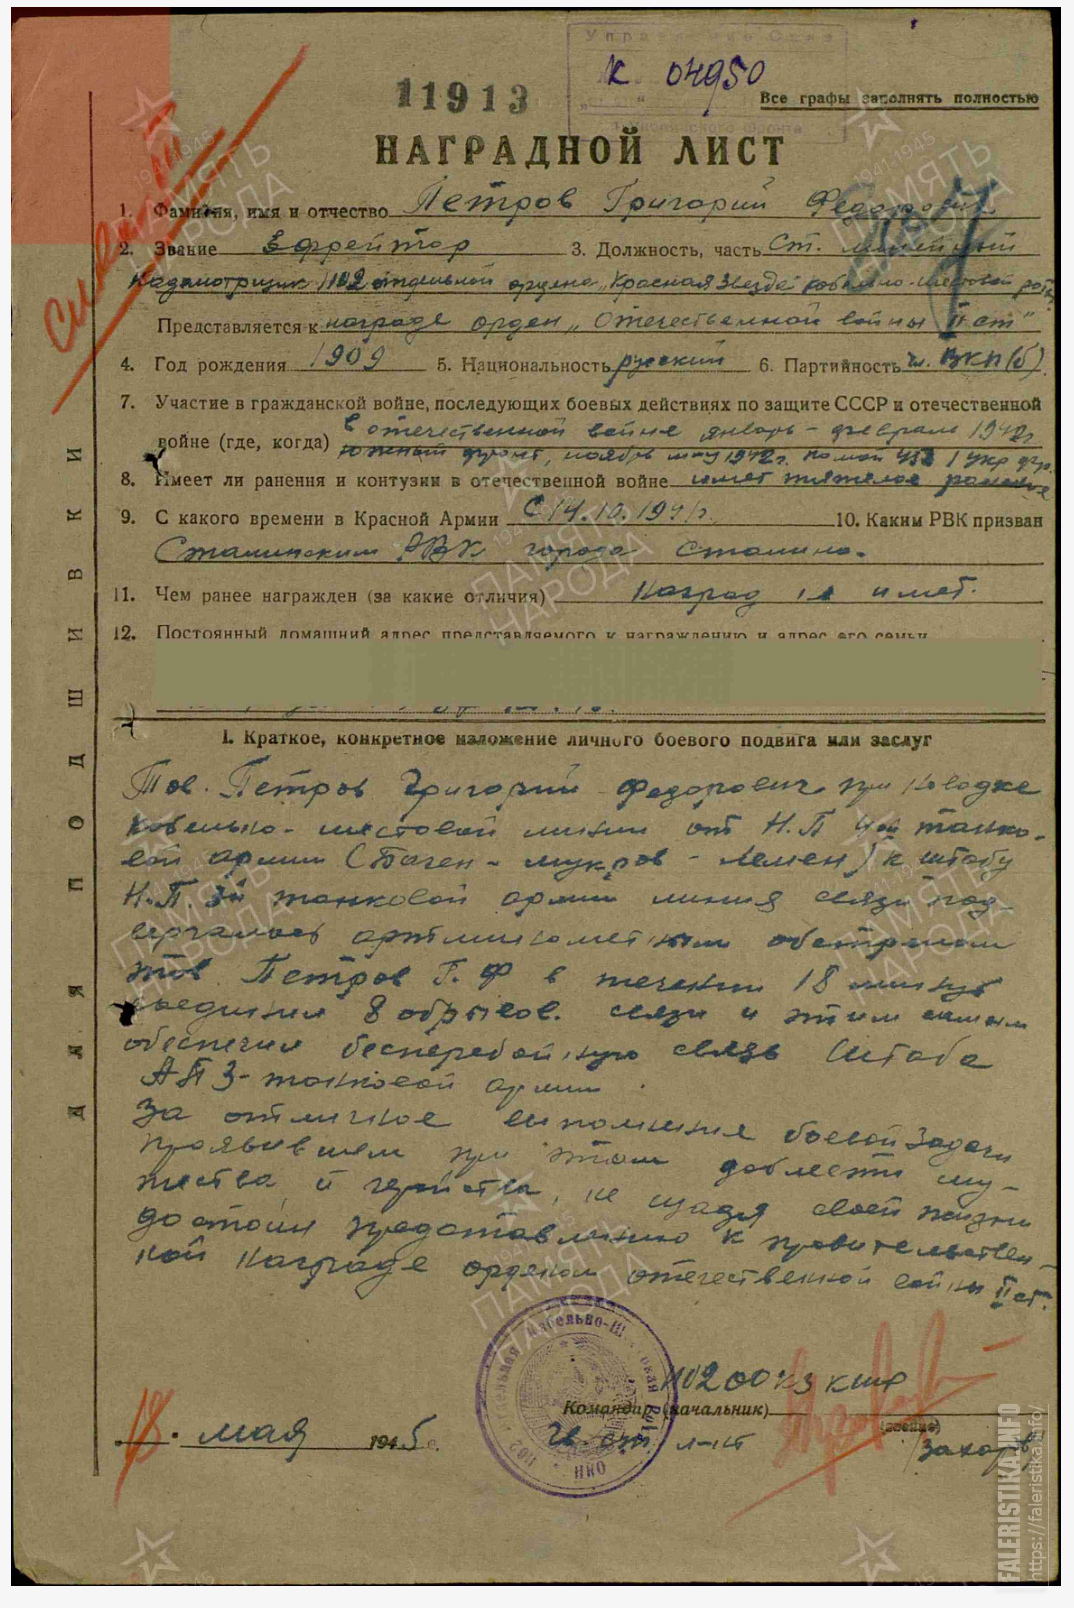 Управление
К 04950
11913
Все графы заполнять полностью
НАГРАДНОЙ ЛИСТ
1. Фамилия, имя и отчество Петров Григорий Федорович
2. Звание Ефрейтор 3. Должность, часть Ст. линейный
надсмотрщик 1102 отдельной ордена „Красная Звезда" кабельно-шестовой роты
Представляется к награде орден „Отечественной войны II ст"
4. Год рождения 1909 5. Национальность русский 6. Партийность чл. ВКП(б)
7. Участие в гражданской войне, последующих боевых действиях по защите СССР и отечественной
войне (где, когда) в отечественной войне январь - февраль 1942г
Южный фронт, ноябрь 1 Укр фр.
8. Имеет ли ранения и контузии в отечественной войне имеет тяжелое ранение
9. С какого времени в Красной Армии С 14.10.1941г. 10. Каким РВК призван
Сталинским РВК города Сталино.
11. Чем ранее награжден (за какие отличия) Наград не имеет.
12. Постоянный домашний адрес представляемого к награждению и адрес его семьи
I. Краткое, конкретное изложение личного боевого подвига или заслуг
Тов. Петров Григорий Федорович при наводке
кабельно-шестовой линии от Н.П 4ой танко-
вой армии ( к штабу
Н.П. 3й танковой армии линия связи под-
вергалась артминометным обстрелам
тов. Петров Г.Ф в течении 18 минут
съединил 8 обрывов связи и этим самым
обеспечил бесперебойную связь Штаба
3-танковой армии.
За отличное выполнения боевой задачи
проявившем при этом доблести му-
жества и геройства, не щадя своей жизни
достоин представлению к правительствен-
ной награде орденом отечественной войны II ст.
1102 ООКЗ КШР
Командир (начальник)
(звание)
Гв. ст л-нт
/Захаров/
18. мая 1945г.
1102 Отдельная Кабельно-Шестовая Рота
ДЛЯ ПОДШИВКИ
ПАМЯТЬ НАРОДА
1941-1945
FALERISTIKA.INFO
https://faleristika.info/